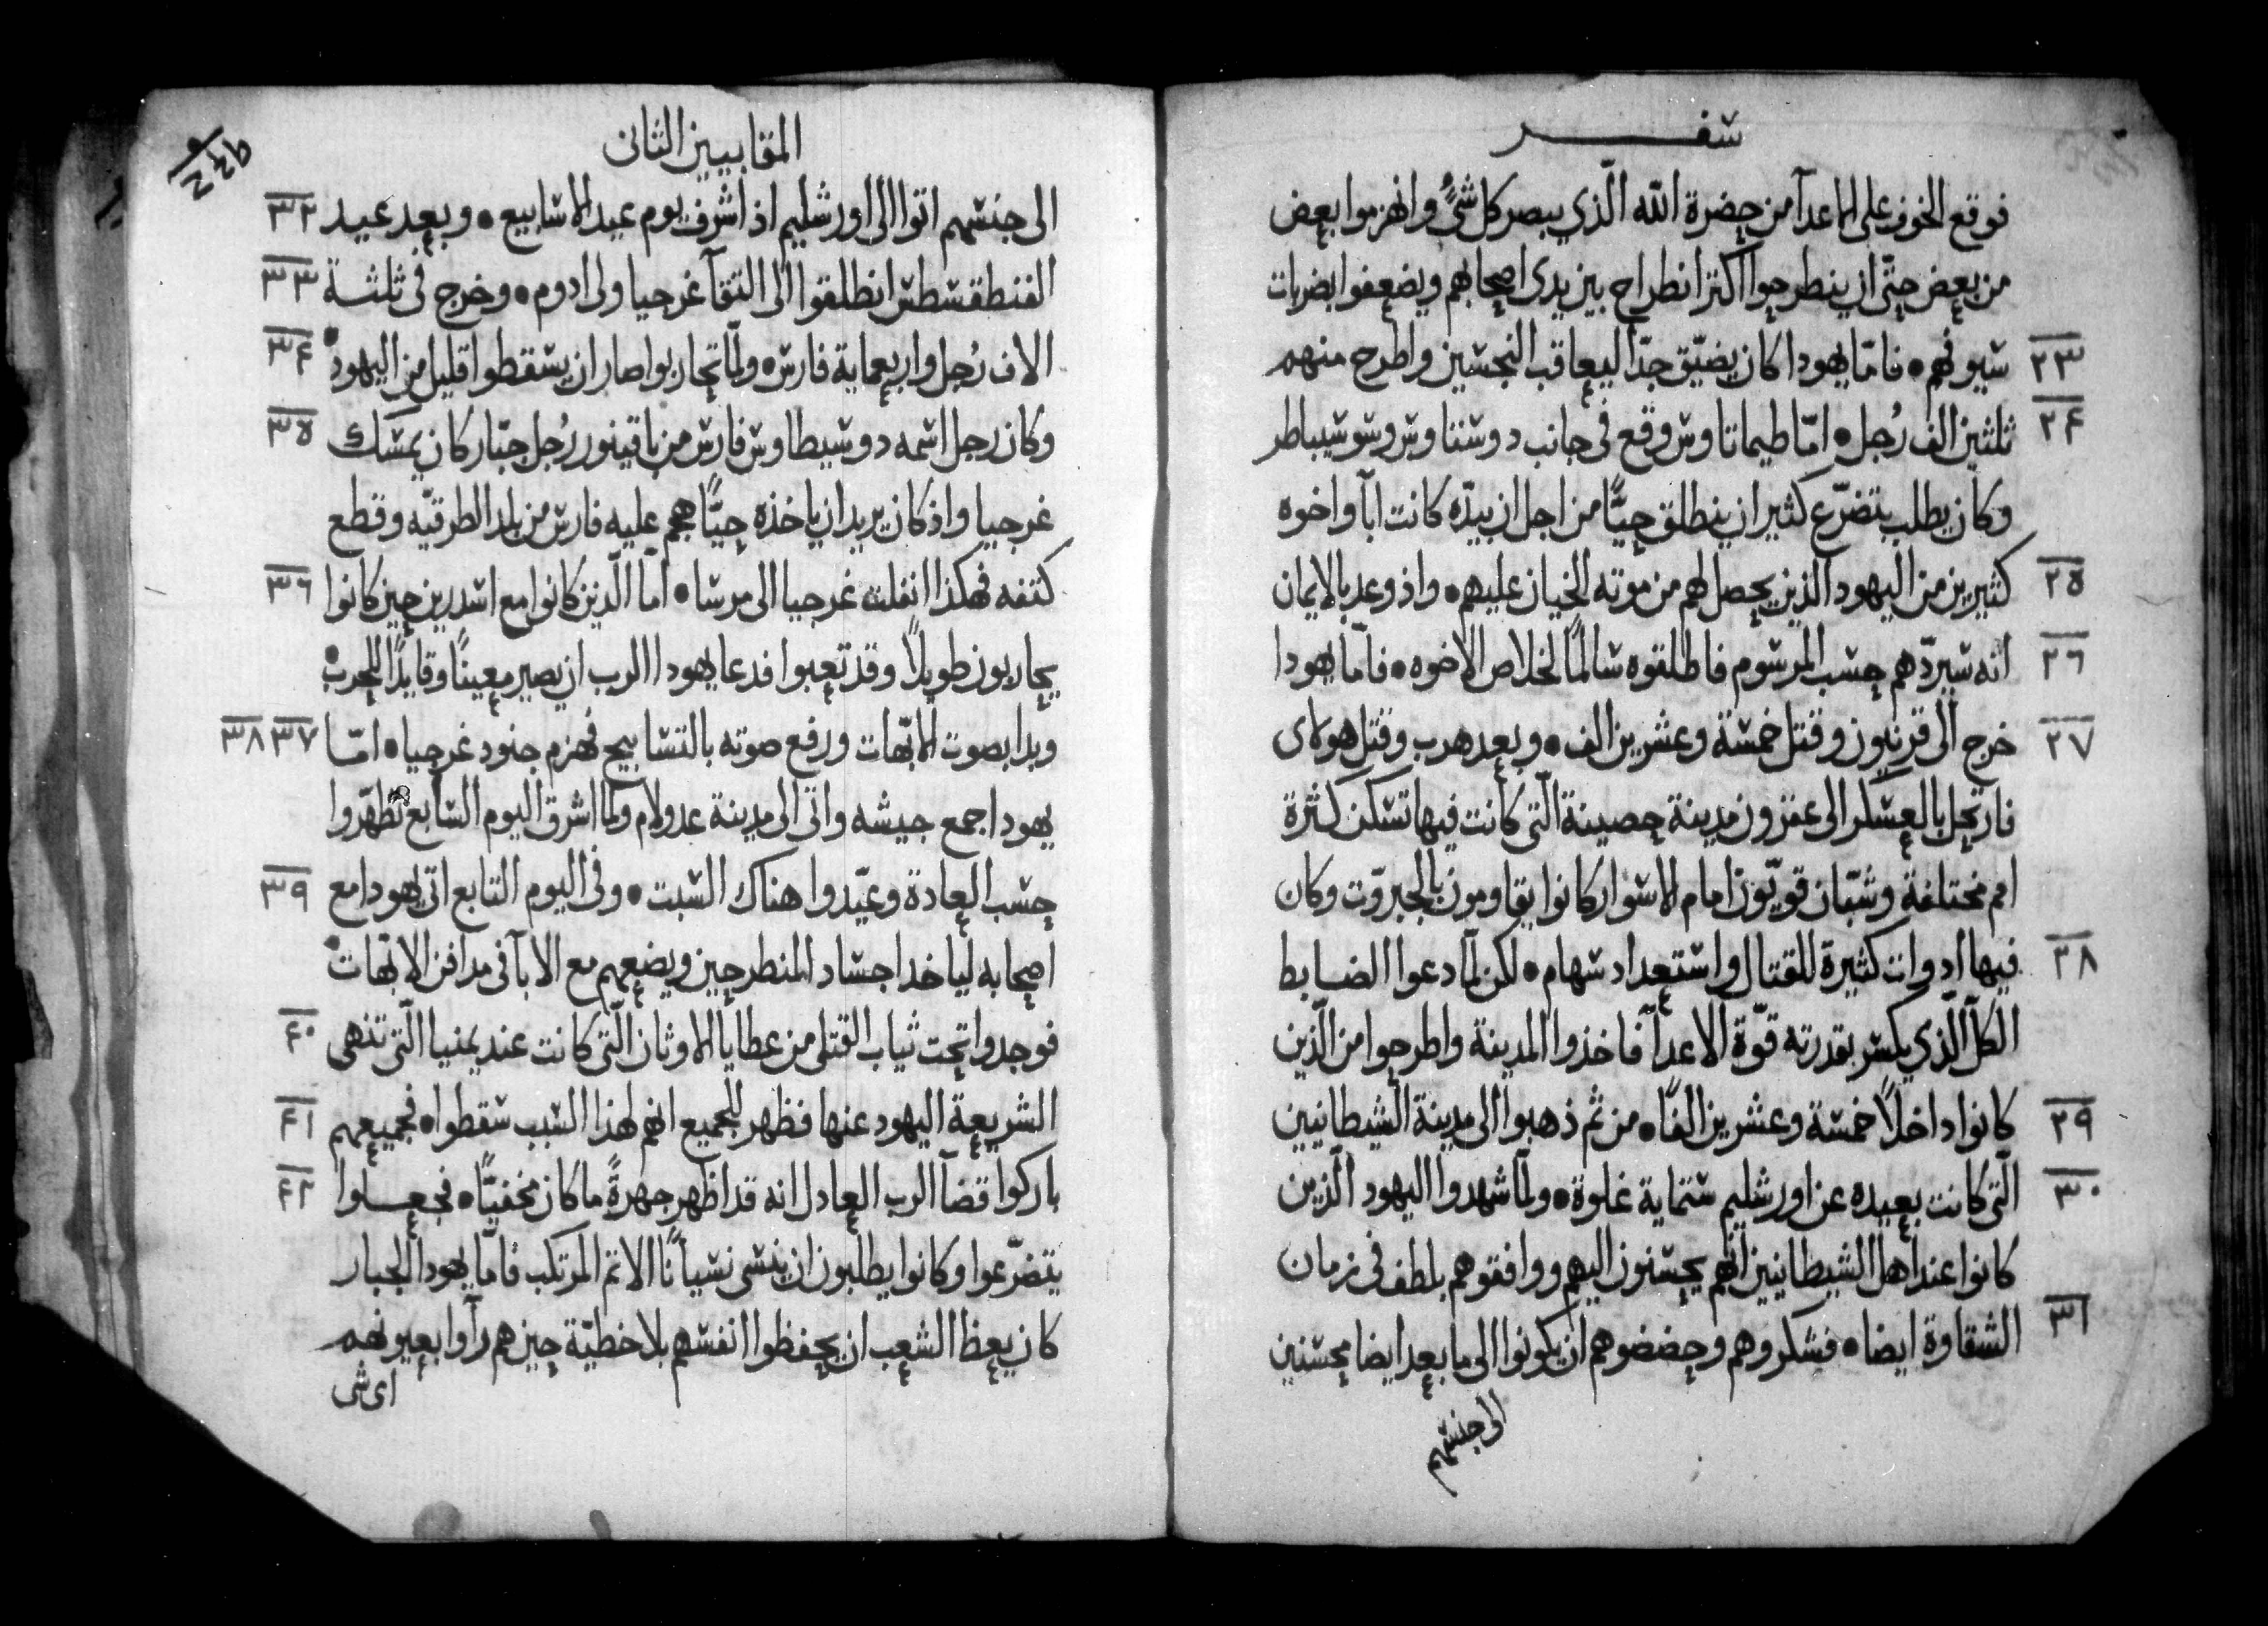 سفر
فوقع الخوف على الاعدآ من حضرة اللّه الّذي يبصر كل شيً وانهزموا بعض
من بعض حتّى ان ينطرحوا اكثر انطراح بين يدى اصحابهم ويضعفوا بضربات
٢٣ سيوفهم • فامّا يهودا كان يضيّق جدّاً ليعاقب النجسين واطرح منهم
٢۴ ثلثين الف رُجل • امّا طيماتاوس وقع فى جانب دوسنتاوس وسوسيباطر
وكان يطلب بتضرّع كثير ان ينطلق حيّاً من اجل ان بيدّه كانت ابآ واخوه
٢٥ كثيرين من اليهود الذين يحصل لهم من موته الخيان عليهم • واذ وعد بالايمان
٢٦ انّه سيردّهم حسب المرسوم فاطلقوه سالماً لخلاص الاخوه • فامّا يهودا
٢٧ خرج الى قرنيون وقتل خمسة وعشرين الف • وبعد هرب وقتل هولاى
فارتحل بالعسكر الى عفرون مدينة حصينة الّتى كانت فيها تسكن كثرة
امم مختلفة وشبّان قويّون امام الاسوار كانوا يقاومون بالجبروّت وكان
٢٨ فيها ادوات كثيرة للقتال واستعداد سهام • لكن لمّا دعوا الضابط
الكلّ الّذي يكسر بقدرته قوّة الاعدآ فاخذوا المدينة واطرحوا من الّذين
٢٩ كانوا داخلاً خمسة وعشرين الفاً • من ثم ذهبوا الى مدينة الشيطانيين
٣٠ الّتى كانت بعيده عن اورشليم ستماية غلوة • ولمّا شهدوا اليهود الّذين
كانوا عند اهل الشيطانيين انّهم يحسنون اليهم ووافقوهم بلطف فى زمان
٣١ الشقاوة ايضا • فشكروهم وحضضوهم ان يكونوا الى ما بعد ايضا محسنين
الى جنسهم
المقابيين الثانى
الى جنسهم اتوا الى اورشليم اذ اشرف يوم عيد الاسابيع • وبعد عيد ٣٢
الفنطقسطس انطلقوا الى التقآ غرجيا ولى ادوم • وخرج فى ثلثة ٣٣
الاف رُجل واربعماية فارس • ولمّا تحاربوا صار ان يسقطوا قليل من اليهود • ٣۴
وكان رجل اسمه دوسيطاوس فارس من باقينور رُجل جبّار كان يمسك ٣٥
غرجيا واذ كان يريد ان ياخذه حيّاً هجم عليه فارس من بلد الطرقيّه وقطع
كتفه فهكذا انفلت غرجيا الى مرسا • امّا الّذين كانوا مع اسدرين حين كانوا ٣٦
يحاربون طويلاً وقد تعبوا فدعا يهودا الرب ان يصير معيناً وقايداً للحرب •
وبدا بصوت الابّهات ورفع صوته بالتسابيح فهزم جنود غرجيا • امّا ٣٧ ٣٨
يهودا جمع جيشه واتى الى مدينة عدولام ولما اشرق اليوم السّابع تطهّروا
حسب العادة وعيّدوا هناك السّبت • وفى اليوم التابع اتى يهودا مع ٣٩
اصحابه لياخد اجساد المنطرحين ويضعهم مع الابآ فى مدافن الابّهات •
فوجدوا تحت ثياب القتلى من عطايا الاوثان الّتى كانت عند يمنيا الّتى تنهى ۴٠
الشريعة اليهود عنها فظهر للجميع انهم لهذا السّبب سقطوا • فجميعهم ۴١
باركوا قضآ الرب العادل انه قد اظهر جهرةً ما كان مخفيّاً • فجعلوا ۴٢
يتضرّعوا وكانوا يطلبون ان ينسى نسياناً الاثم المرتكب فامّا يهودا الجبار
كان يعظ الشعب ان يحفظوا انفسهم بلا خطيّة حين هم رآوا بعيونهم
اى شى